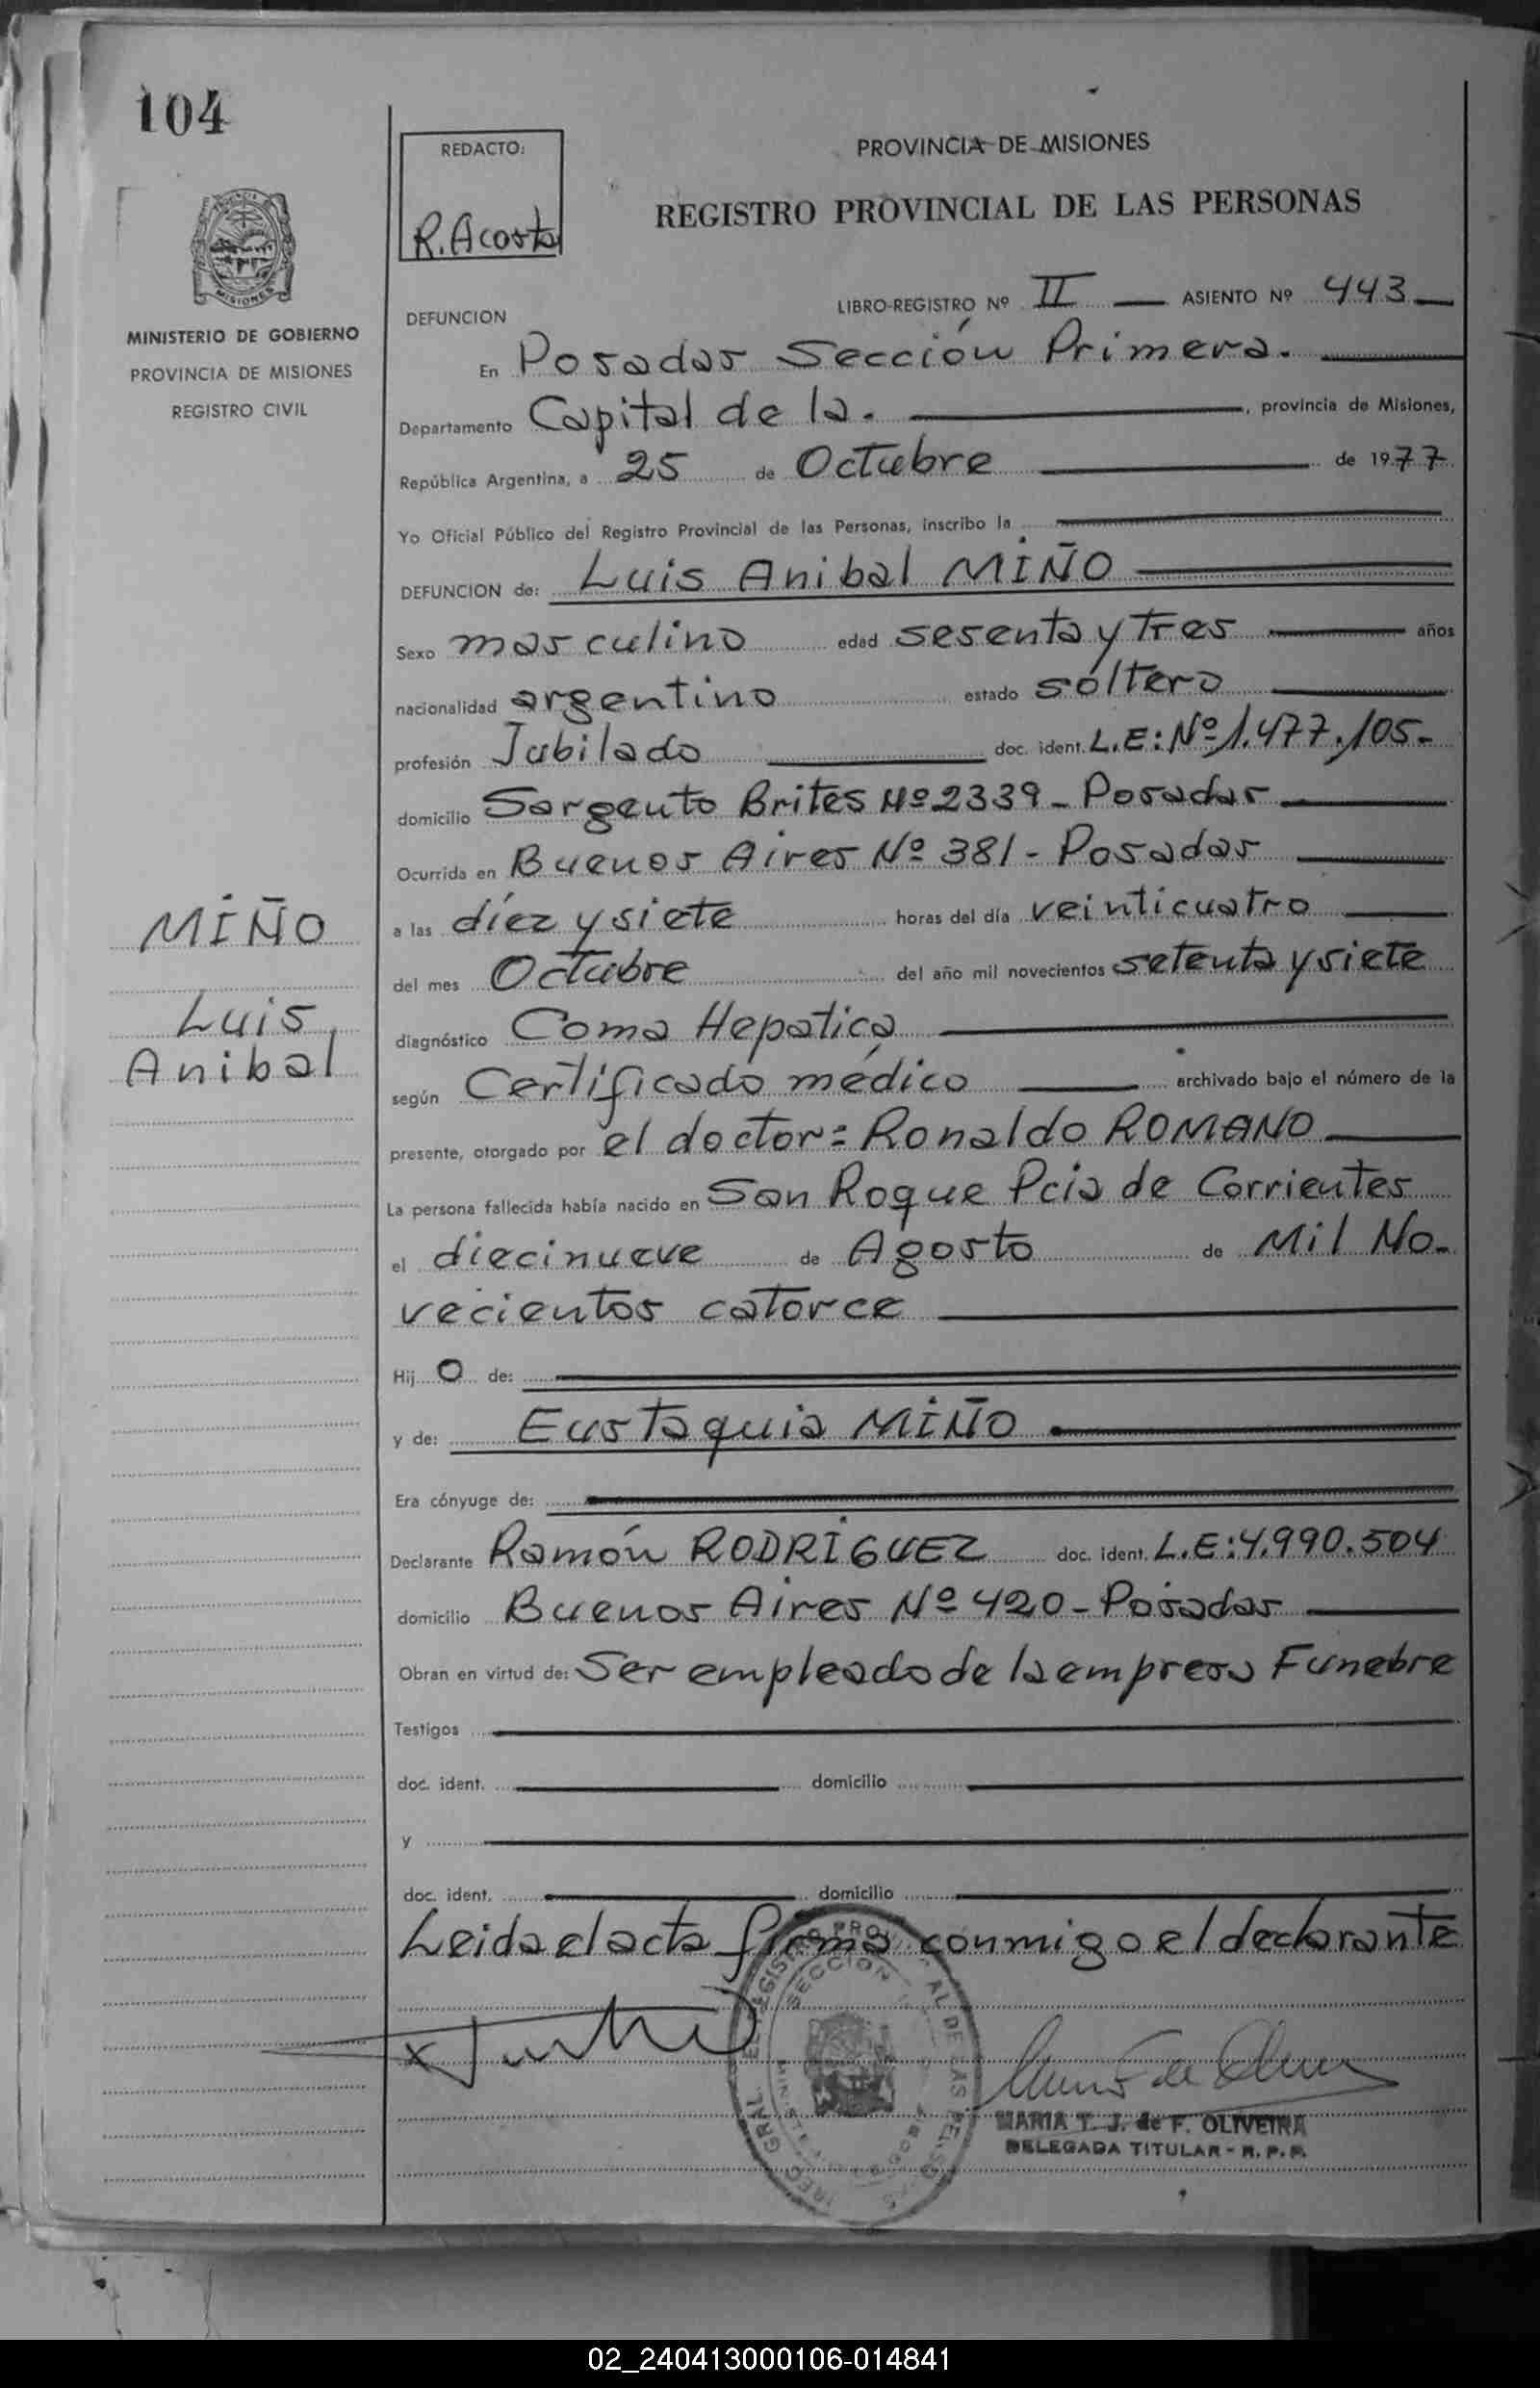 104
REDACTO:
R. Acosta
PROVINCIA DE MISIONES
REGISTRO PROVINCIAL DE LAS PERSONAS
MISIONES
MINISTERIO DE GOBIERNO
PROVINCIA DE MISIONES
REGISTRO CIVIL
LIBRO-REGISTRO Nº II ASIENTO Nº 443
DEFUNCION
En Posadas Sección Primera.
Departamento Capital de la. , provincia de Misiones,
República Argentina, a 25 de Octubre de 1977
Yo Oficial Público del Registro Provincial de las Personas, inscribo la
DEFUNCION de: Luis Anibal MIÑO
Sexo masculino edad sesenta y tres años
nacionalidad argentino estado soltero
profesión Jubilado doc. ident. L.E: Nº 1.477.105-
domicilio Sargento Brites Nº 2339 - Posadas
Ocurrida en Buenos Aires Nº 381 - Posadas
a las díez y siete horas del día veinticuatro
del mes Octubre del año mil novecientos setenta y siete
diagnóstico Coma Hepatica
según Certificado médico archivado bajo el número de la
presente, otorgado por el doctor: Ronaldo ROMANO
La persona fallecida había nacido en San Roque Pcia de Corrientes
el diecinueve de Agosto de Mil No-
vecientos catorce
Hij o de:
y de: Eustaquia MIÑO
Era cónyuge de:
Declarante Ramón RODRIGUEZ doc. ident. L.E: 4.990.504
domicilio Buenos Aires Nº 420 - Posadas
Obran en virtud de: Ser empleado de la empresa Funebre
Testigos
doc. ident. domicilio
y
doc. ident. domicilio
Leida el acta firma conmigo el declarante
MIÑO
Luis
Anibal
MARIA T. J. de F. OLIVEIRA
DELEGADA TITULAR - R. P. P.
02_240413000106-014841